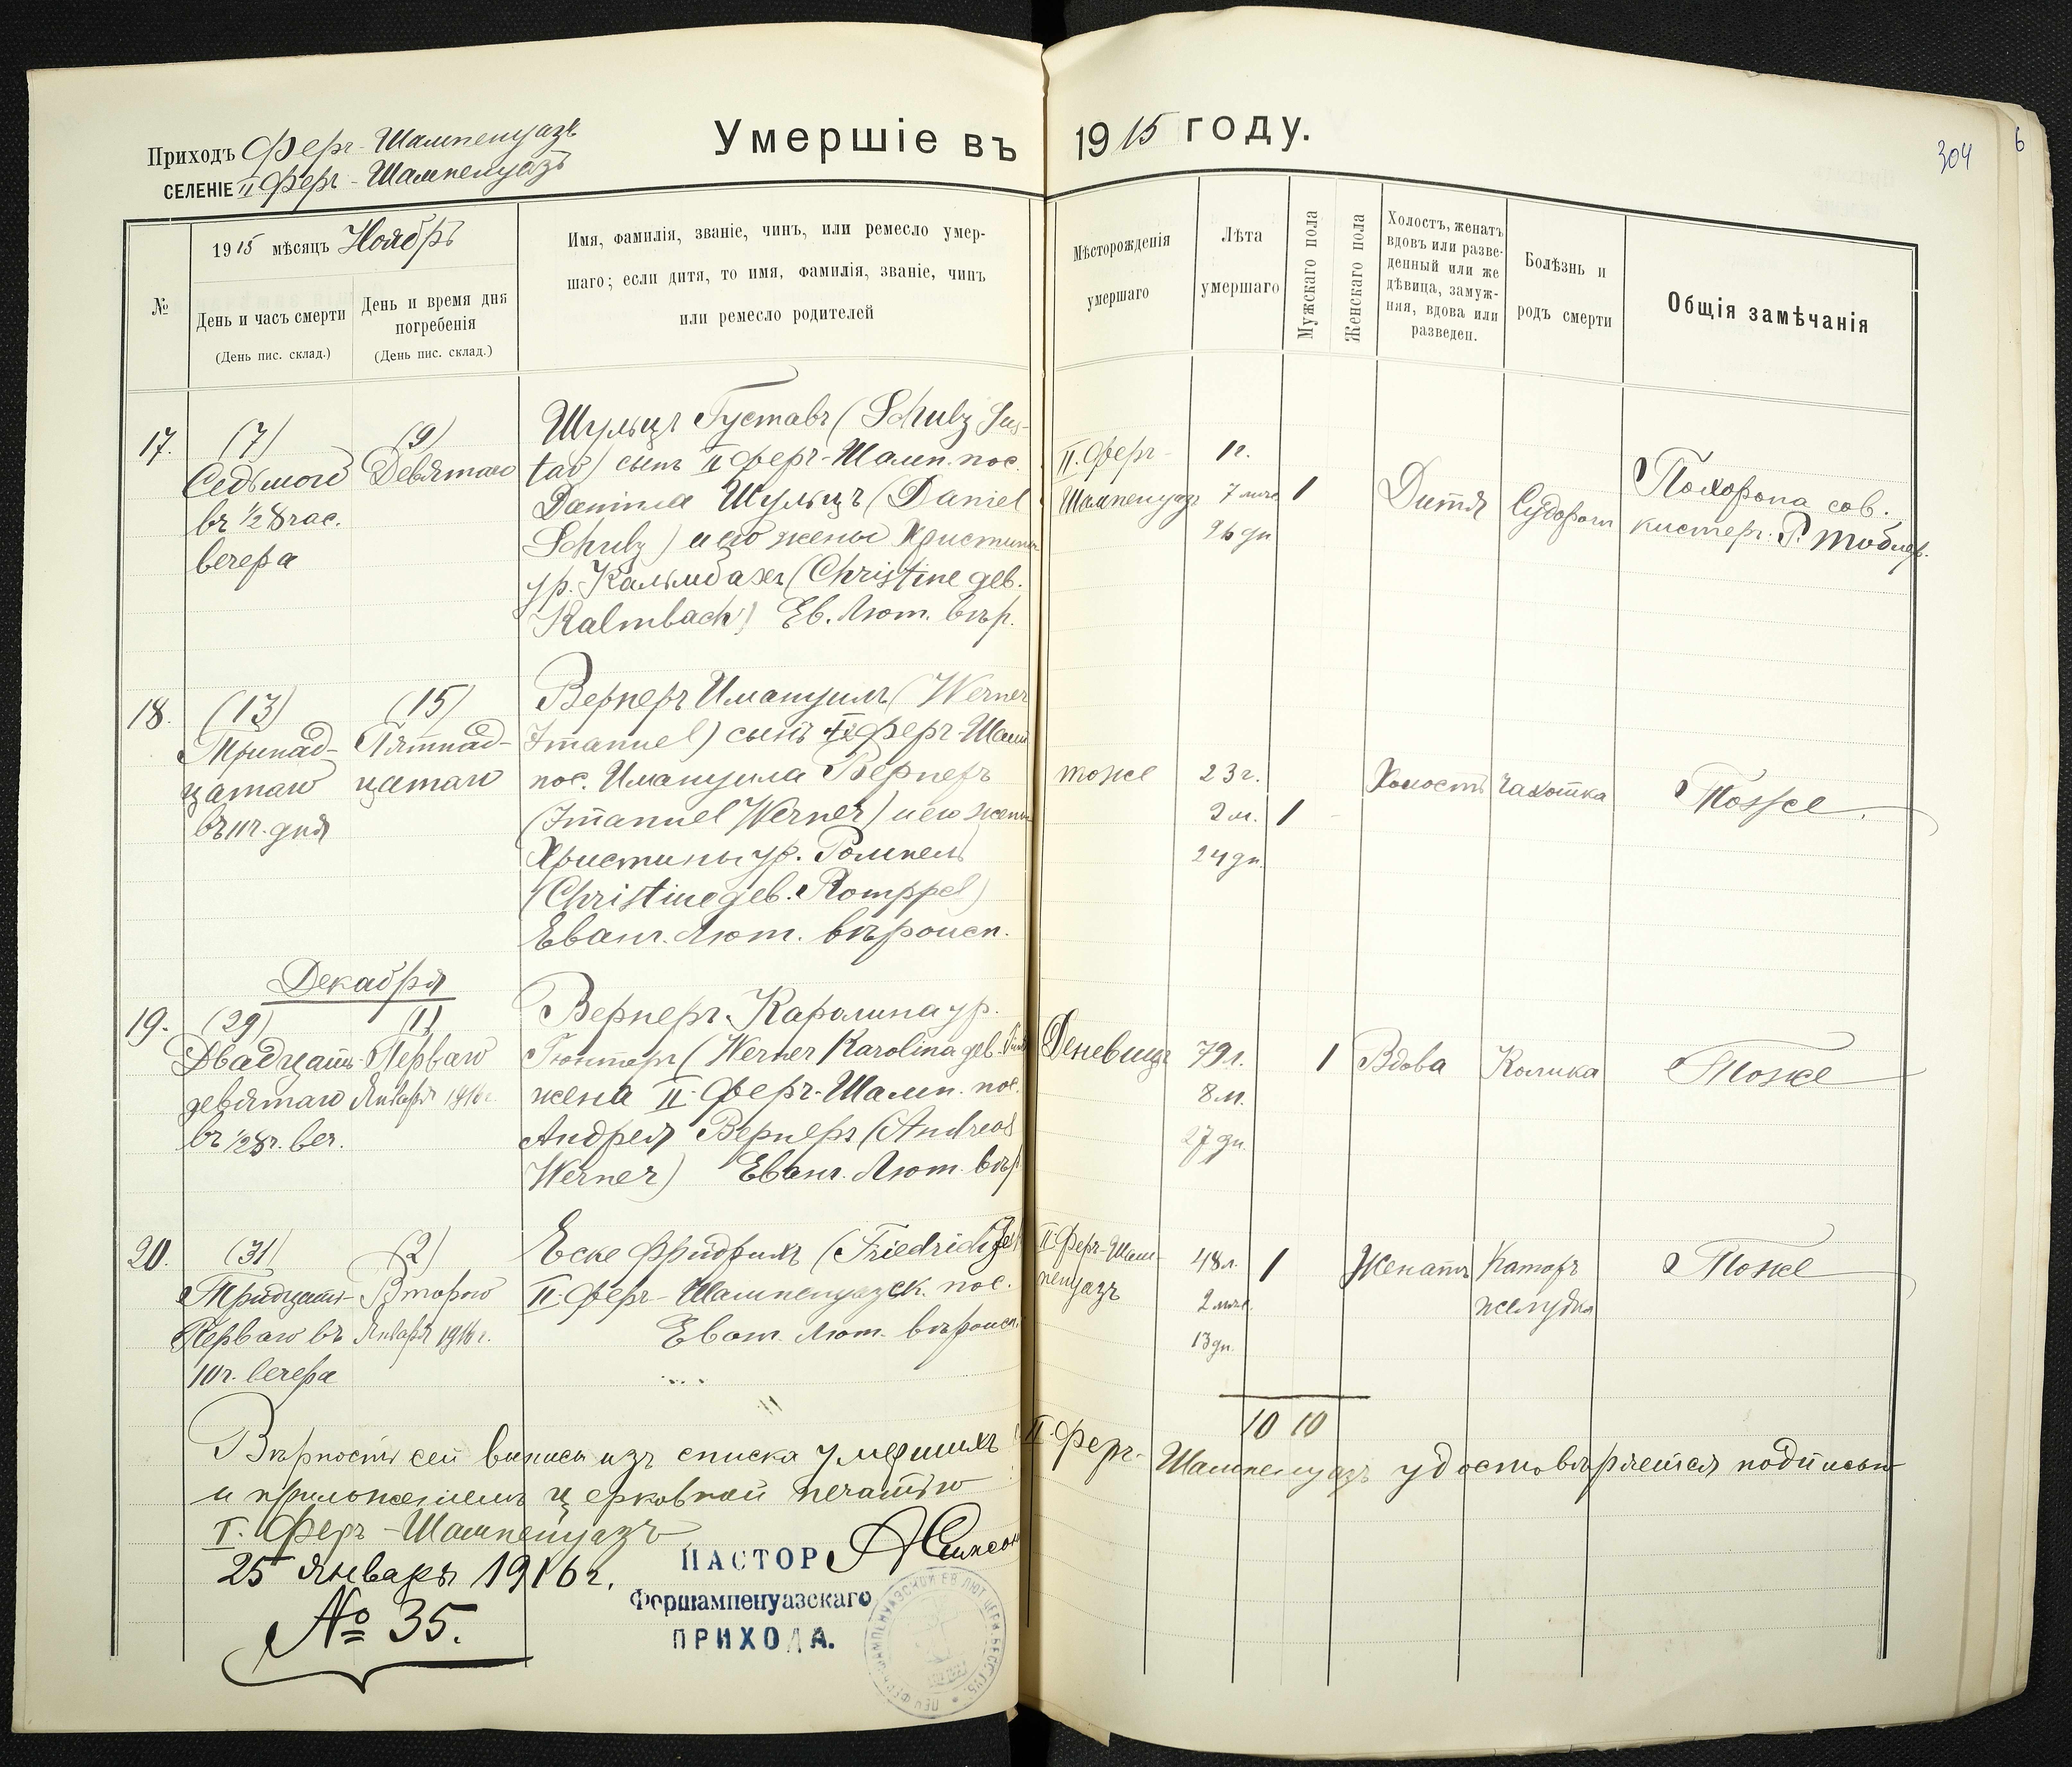 Умершіе въ 1915 году.
304
6
Приходъ Ферг-Шампенуазъ
СЕЛЕНІЕ II Ферг-Шампенуазъ
№
1915 мѣсяцъ Ноябрь
День и часъ смерти
(День пис. склад.)
День и время дня
погребенія
(День пис. склад.)
Имя, фамилія, званіе, чинъ, или ремесло умер-
шаго; если дитя, то имя, фамилія, званіе, чинъ
или ремесло родителей
Мѣсторожденія
умершаго
Лѣта
умершаго
Мужскаго пола
Женскаго пола
Холостъ, женатъ
вдовъ или разве-
денный или же
дѣвица, замуж-
няя, вдова или
разведен.
Болѣзнь и
родъ смерти
Общія замѣчанія
17.
(7)
Седьмого
въ ½ 8 час.
вечера
(9)
Девятаго
Шульцъ Густавъ (Schulz Gus-
tav) сынъ II Ферг-Шамп. пос.
Даніила Шульцъ (Daniel
Schulz) и его жены Христины
ур. Кальмбахъ (Christine geb.
Kalmbach) Ев. Лют. вѣр.
II. Ферг-
Шампенуазъ
1г.
7 мѣс.
26 дн
1
Дитя
Судороги
Похорона сов.
кистеръ. Р. Тоблер.
18.
(13)
Тринад-
цатаго
въ 11 ч. дня
(15)
Пятнад-
цатаго
Вернеръ Имануилъ (Werner
Imanuel) сынъ II Ферг-Шамп
пос. Имануила Вернеръ
(Imanuel Werner) и его жены
Христины ур. Ромпель
(Christine geb. Romppel)
Еванг. Лют. вѣроисп.
тоже
23 г.
2 м.
24 дн.
1
Холостъ
Чахотка
Тоже
Декабря
19.
(29)
Двадцать
девятаго
въ ½ 8 ч. веч.
(1)
Перваго
Января 1916 г.
Вернеръ Каролина ур.
Гюнтеръ (Werner Karolina geb.
жена II Ферг-Шамп. пос.
Андрея Вернеръ (Andreas
Werner) Еванг. Лют. вѣр
Деневицъ
79 л.
8 м.
27 дн.
1
Вдова
Колика
Тоже
20.
(31)
Тридцать
Перваго въ
10 ч. вечера
(2)
Второго
Января 1916 г.
Еске Фридрихъ (Friedrich
II. Ферг-Шампенуазск. пос.
Еванг. Лют. вѣроисп.
II Ферг-Шам-
пенуазъ
48 л.
2 мѣс.
13 дн.
1
Женатъ
Катарь
желудка
Тоже
10 10
Вѣрность сей выписи изъ списка умершихъ II Ферг-Шампенуазъ удостовѣряется подписью
и приложеніемъ церковной печатью
I. Ферг-Шампенуазъ
25 Января 1916 г.
№ 35.
ПАСТОР
Фершампенуазскаго
ПРИХОДА.